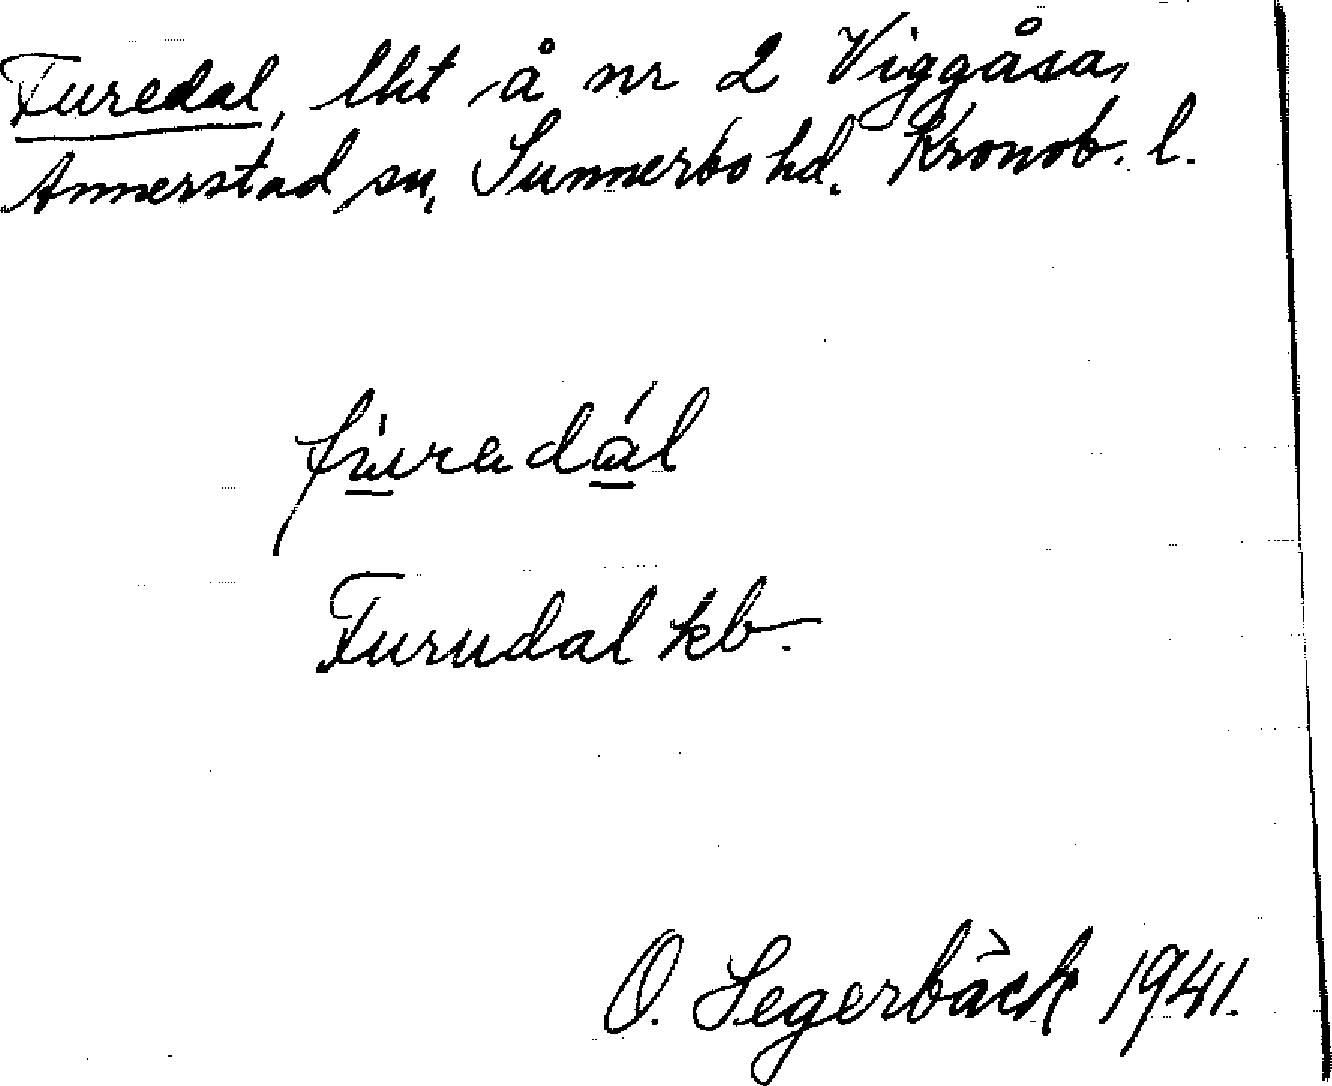 Furedal, lht å nr 2 Viggåsa,
Annerstad sn, Sunnerbo hd. Kronob. l.
furadál
Furudal kb.
O. Segerbäck 1941.